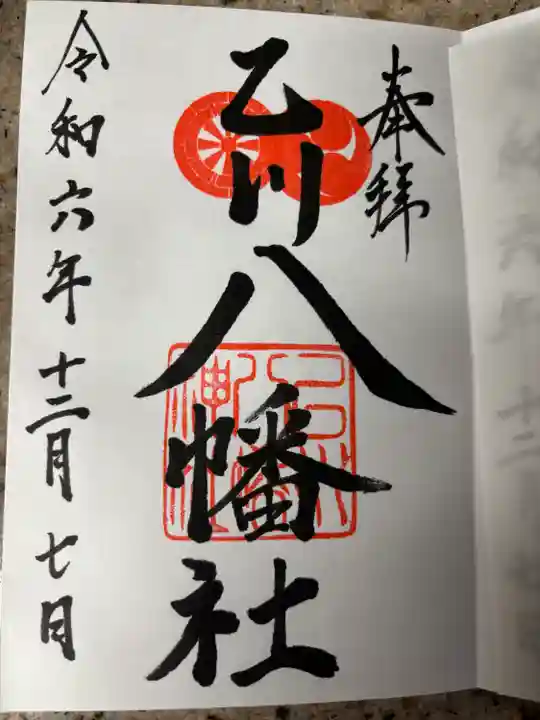 奉拝
乙川八幡社
令和六年十二月七日